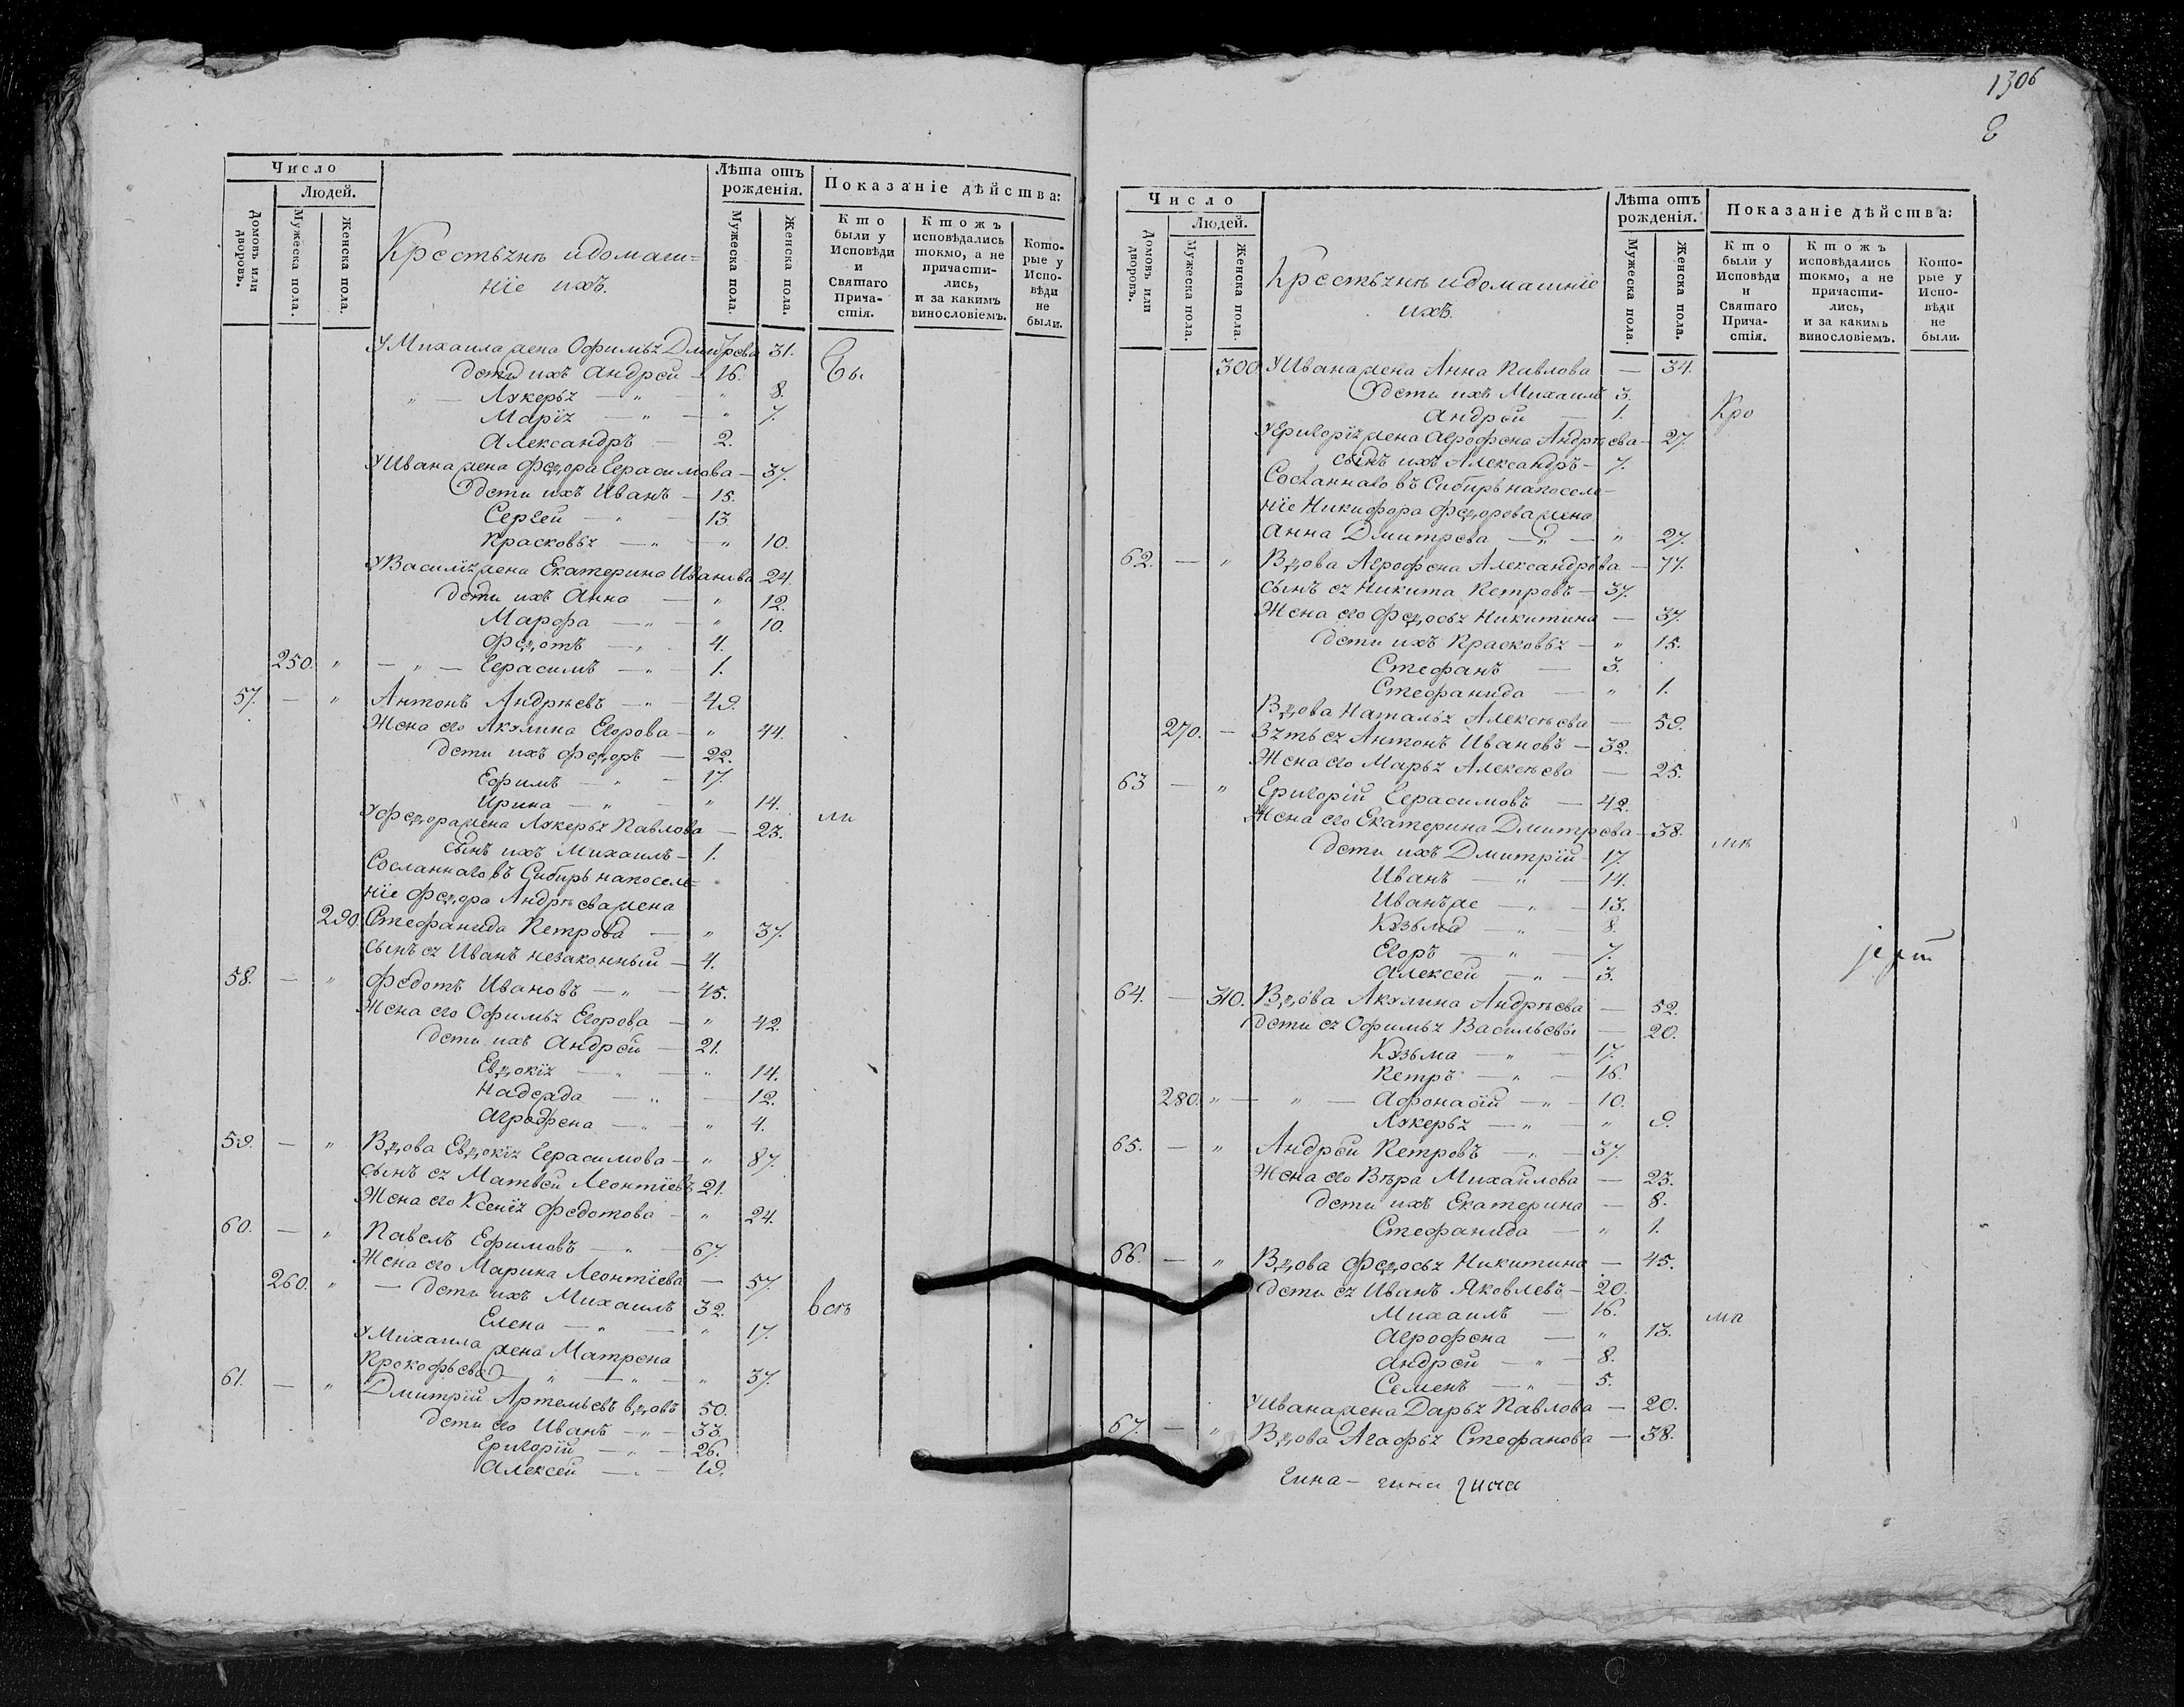 Число
Людей.
Домовъ или дворовъ.
Мужеска пола.
Женска пола.
Крестьянѣ и домаш=
ніе ихъ.
Лѣта отъ рожденія.
Мужеска пола.
Женска пола.
Показаніе дѣйства:
Кто были у Исповѣди и Святаго Прича- стія.
Ктожъ исповѣдались токмо, а не причасти- лись, и за какимъ винословіемъ.
Кото- рые у Испо- вѣди не были.
У Михаила жена Офимья Дмитрева 31. Бы
Дети ихъ Андрей — 16.
" — Лукерья — " — " 8.
Марія — " — " 7.
Александръ — 2.
У Ивана жена Федора Герасимова — 37.
Дети ихъ Иванъ — 15.
Сергей — " — 13.
Прасковья — " — " 10.
У Василія жена Екатерина Иванова 24.
Дети ихъ Анна — " 12.
Марфа — " — " 10.
Федотъ — " 4.
250. " — " — Герасимъ — " — 1.
57. — " Антонъ Андрѣевъ — " — 49.
Жена его Акулина Егорова — " 44.
Дети ихъ Федоръ — 22.
Ефимъ — " — 17.
Ирина — " — " 14.
У Федора жена Лукерья Павлова — 23. ли
сынъ ихъ Михаилъ — 1.
Сосланнаго въ Сибирь на поселе=
ніе Федора Андрѣева жена
290. Стефанида Петрова — " 37.
сынъ ея Иванъ незаконный — 4.
58. — " Федотъ Ивановъ — " — 45.
Жена его Офимья Егорова — " 42.
Дети ихъ Андрей — 21.
Евдокія — " — " 14.
Надежда — " — 12.
Агрофена — " — " 4.
59. — " Вдова Евдокія Герасимова — " 87.
сынъ ея Матвей Леонтіевъ 21.
Жена его Ксенія Федотова — " 24.
60. — " Павелъ Ефимовъ — " — 67.
Жена его Марина Леонтіева — 57.
260. " — Дети ихъ Михаилъ 32. всѣ
Елена — " — " 17.
У Михаила жена Матрена
Прокофьева — " — " — " 37.
61. — " Дмитрій Артемьевъ вдовъ 50.
Дети его Иванъ — " — 33.
Григорій — " — 26.
Алексей — " — 19.
1306
Число
Людей.
Домовъ или дворовъ.
Мужеска пола.
Женска пола.
Крестьянѣ и домашніе
ихъ.
Лѣта отъ рожденія.
Мужеска пола.
Женска пола.
Показаніе дѣйства:
Кто были у Исповѣди и Святаго Прича- стія.
Ктожъ исповѣдались токмо, а не причасти- лись, и за какимъ винословіемъ.
Кото- рые у Испо- вѣди не были.
300. У Ивана жена Анна Павлова — 34.
Дети ихъ Михаилъ 3.
Андрей — 1. Кро
У Григорія жена Агрофена Андрѣева — 27.
сынъ ихъ Александръ — 7.
Сосланнаго въ Сибирь на поселе-
ніе Никифора Федорова жена
Анна Дмитрева — " — " 27.
62. — " Вдова Агрофена Александрова — 77.
сынъ ея Никита Петровъ — 37.
Жена его Федосья Никитина — 37.
Дети ихъ Прасковья — " 15.
Стефанъ — 3.
Стефанида — " 1.
Вдова Наталья Алексѣева — 59.
270. — Зять ея Антонъ Ивановъ — 32.
Жена его Марья Алексѣева — 25.
63 — " Григорій Герасимовъ — 42.
Жена его Екатерина Дмитрева — 38. мѣ
Дети ихъ Дмитрій — 17.
Иванъ — " — 14.
Иванъ же — " — 13.
Кузьма — " — 8.
Егоръ — " — 7.
Алексей — " — 3.
64. — 310. Вдова Акулина Андрѣева — 52.
Дети ея Офимья Васильевы — 20.
Кузьма — " — 17.
Петръ — " — 16.
280. " — " — Афонасій — " — 10.
Лукерья — " — " 9.
65. — " Андрей Петровъ — " — 37.
Жена его Вѣра Михайлова — 23.
Дети ихъ Екатерина — 8.
Стефанида — " 1.
66. — " Вдова Федосья Никитина — 45.
Дети ея Иванъ Яковлевъ — 20.
Михаилъ — 16. ма
Агрофена — " 13.
Андрей — " — 8.
Семенъ — " — 5.
У Ивана жена Дарья Павлова — 20.
67. — " Вдова Агафья Стефанова — 38.